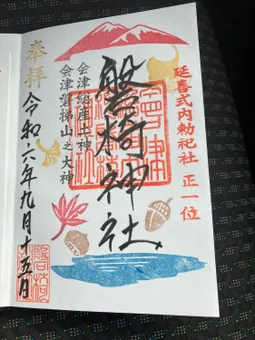 延喜式内勅祀社 正一位
磐椅神社
会津総座上神
会津磐梯山之大神
奉拝
令和六年九月十五日